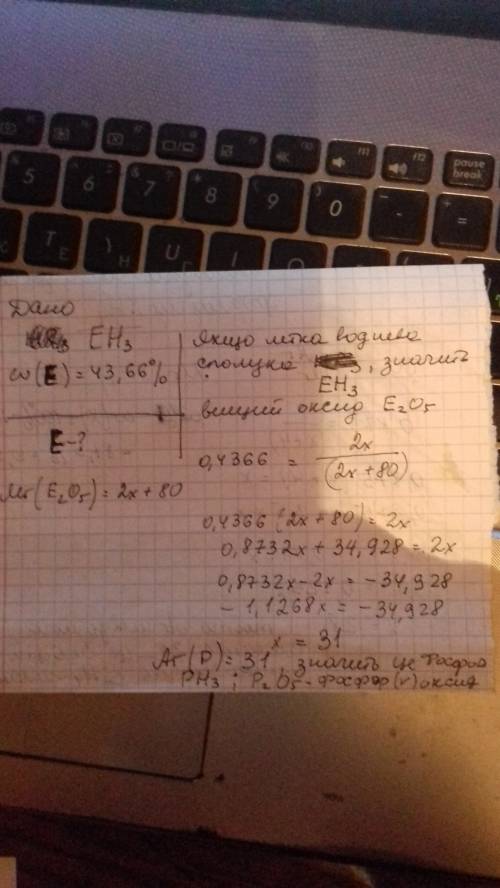 5
6
7
8
9
0
-
=
f12
pause
break
Т Е
U
I
O
Дано
EH₃
ω(E) = 43,66%
E-?
Mr(E₂O₅) = 2x + 80
Якщо летка воднева
сполука EH₃, значить
вищий оксид E₂O₅
0,4366 = 2x / (2x + 80)
0,4366 (2x + 80) = 2x
0,8732x + 34,928 = 2x
0,8732x - 2x = -34,928
- 1,1268x = -34,928
x = 31
Ar(P) = 31, значить це Фосфор
PH₃ ; P₂O₅ - фосфор (v) оксид